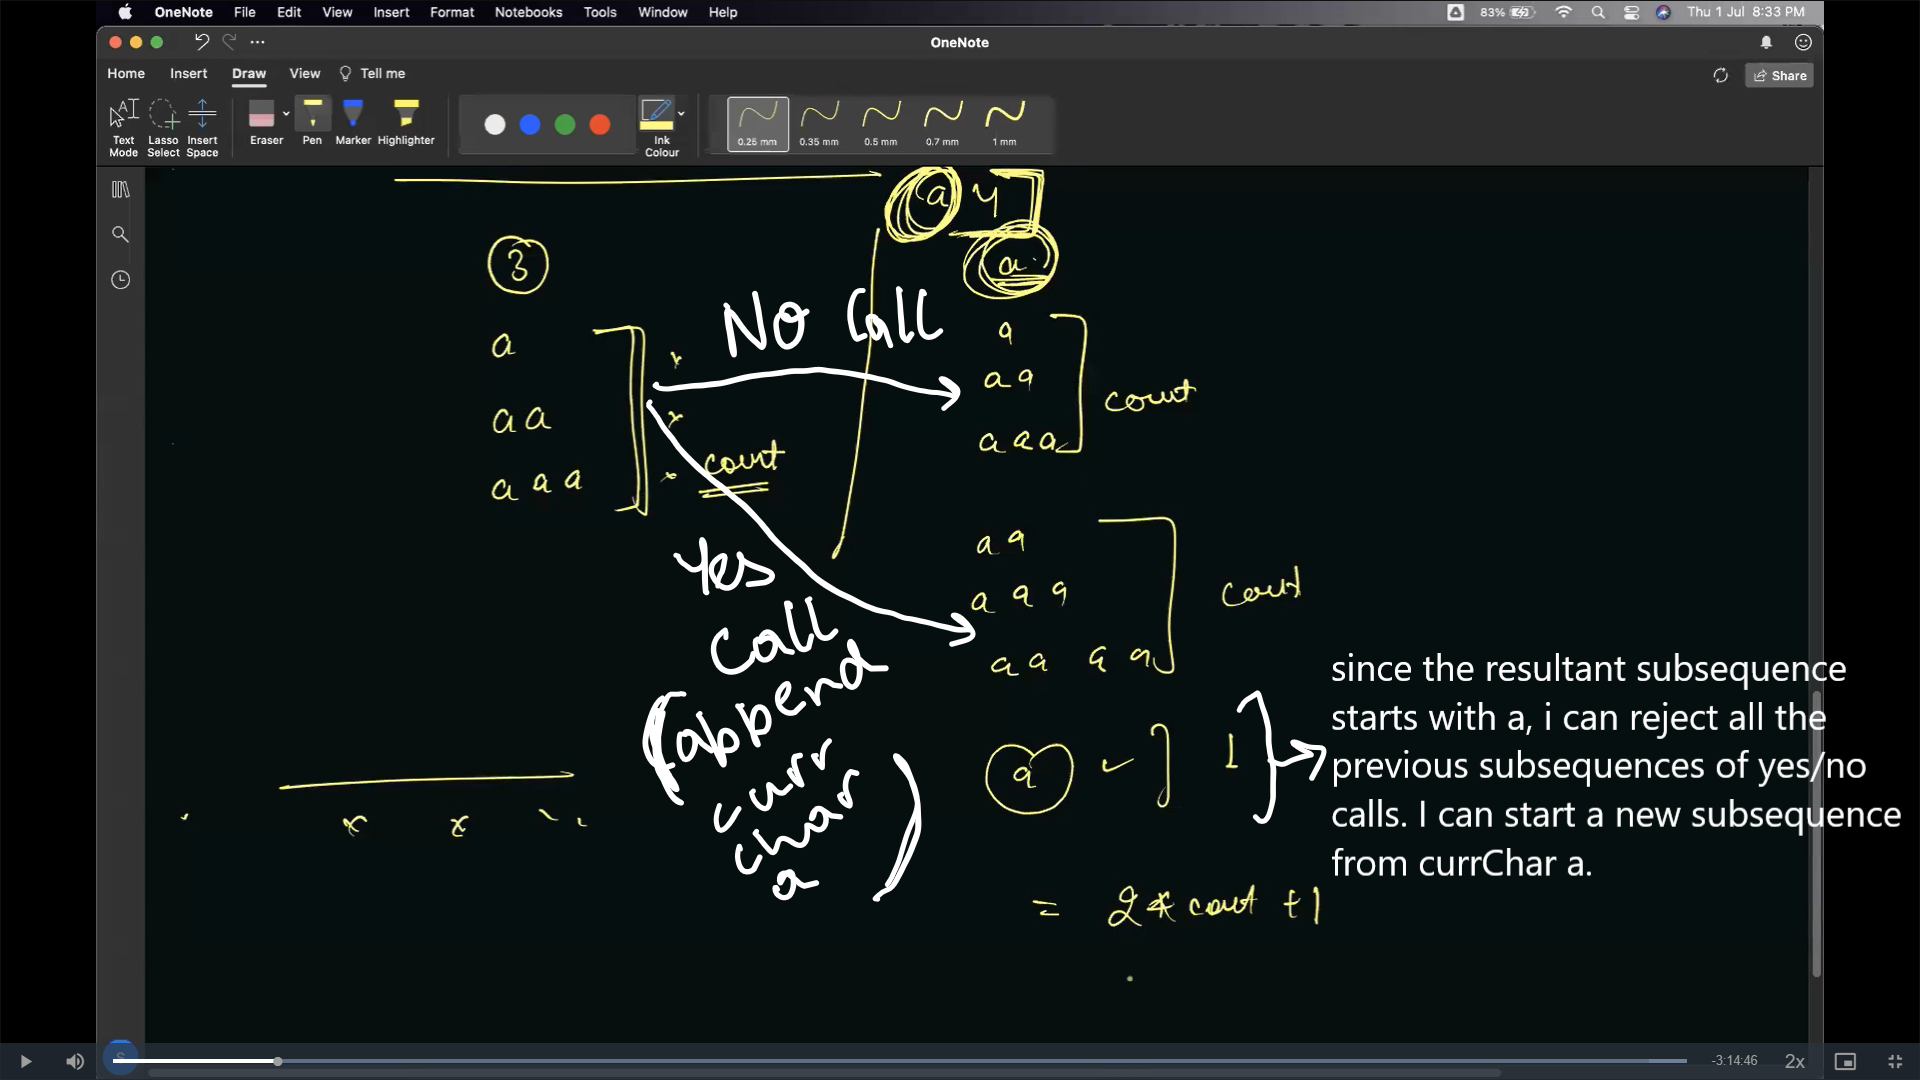 OneNote File Edit View Insert Format Notebooks Tools Window Help 83% Thu 1 Jul 8:33 PM
OneNote
Home Insert Draw View Tell me Share
Text Mode
Lasso Select
Insert Space
Eraser
Pen
Marker
Highlighter
Ink Colour
0.25 mm
0.35 mm
0.5 mm
0.7 mm
1 mm
a
3
a
No Call
a
a
a a
a a
a a a
count
a a a
count
Yes
Call
(append
curr
char
a)
a a
a a a
a a a a
count
a
1
since the resultant subsequence
starts with a, i can reject all the
previous subsequences of yes/no
calls. I can start a new subsequence
from currChar a.
= 2 * count + 1
S
-3:14:46
2x